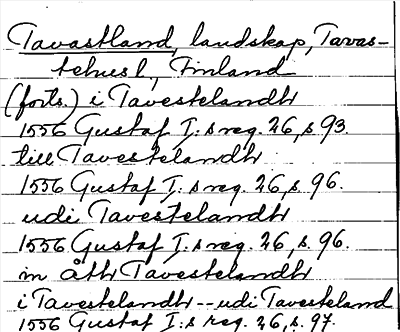 Tavastland, landskap, Tavas-
tehus l., Finland
(forts.) i Tavestelandh
1556 Gustaf I:s reg. 26, s. 93.
till Tavestelandh
1556 Gustaf I:s reg. 26, s. 96.
udi Tavestelandh
1556 Gustaf I:s reg. 26, s. 96.
in åth Tavestelandh
i Tavestelandh -- udi Tavesteland
1556 Gustaf I:s reg. 26, s. 97.